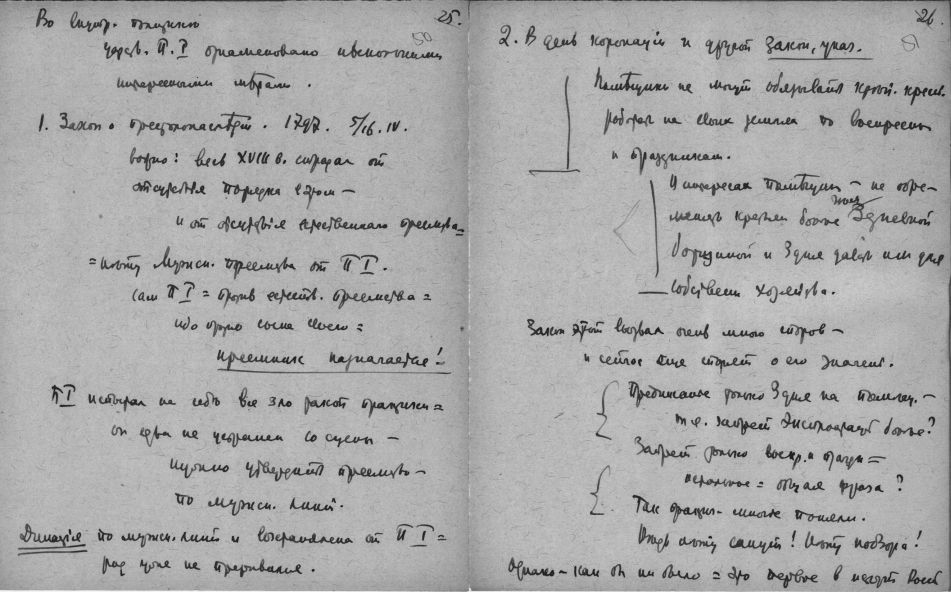 25.
50
Во внутр.
царств. П. I ознаменовано несколькими
интересными мерами.
1. Закон о престолонаследіи. 1797. 5/16. IV.
важно: весь XVIII в. страдал от
отсутствія порядка в этом –
и от отсутствія естественного преемства =
= нету Мужск. преемства от П I.
сам П I = против естеств. преемства =
ибо против сына своего =
преемник назначается!
П I испытал на себе все зло такой практики =
он едва не устранен со сцены –
нужно утвердить преемство –
по мужск. линіи.
Династія по мужск. линіи и восстановлена от П I =
ряд уже не прерывался.
26.
51
2. В день коронаціи и другой закон, указ.
Помѣщики не могут обязывать крѣп. крест.
работать на своих землях по воскресеньям
и праздникам.
В интересах помѣщич. – не обре-
менять крестьян более 3 дневной
барщиной и 3 дня давать им для
собствен. хозяйства.
Закон этот вызвал очень много споров –
и сейчас еще спорят о его значеніи.
Предписание только 3 дня на помещ. –
т.е. запрет эксплоатац. больше?
Запрет только воскр. и праздн =
остальное = общая фраза?
Так практич. многие поняли.
Ведь нету санкцій! Нету надзора!
Однако – как бы ни было = это первое в исторіи Россіи